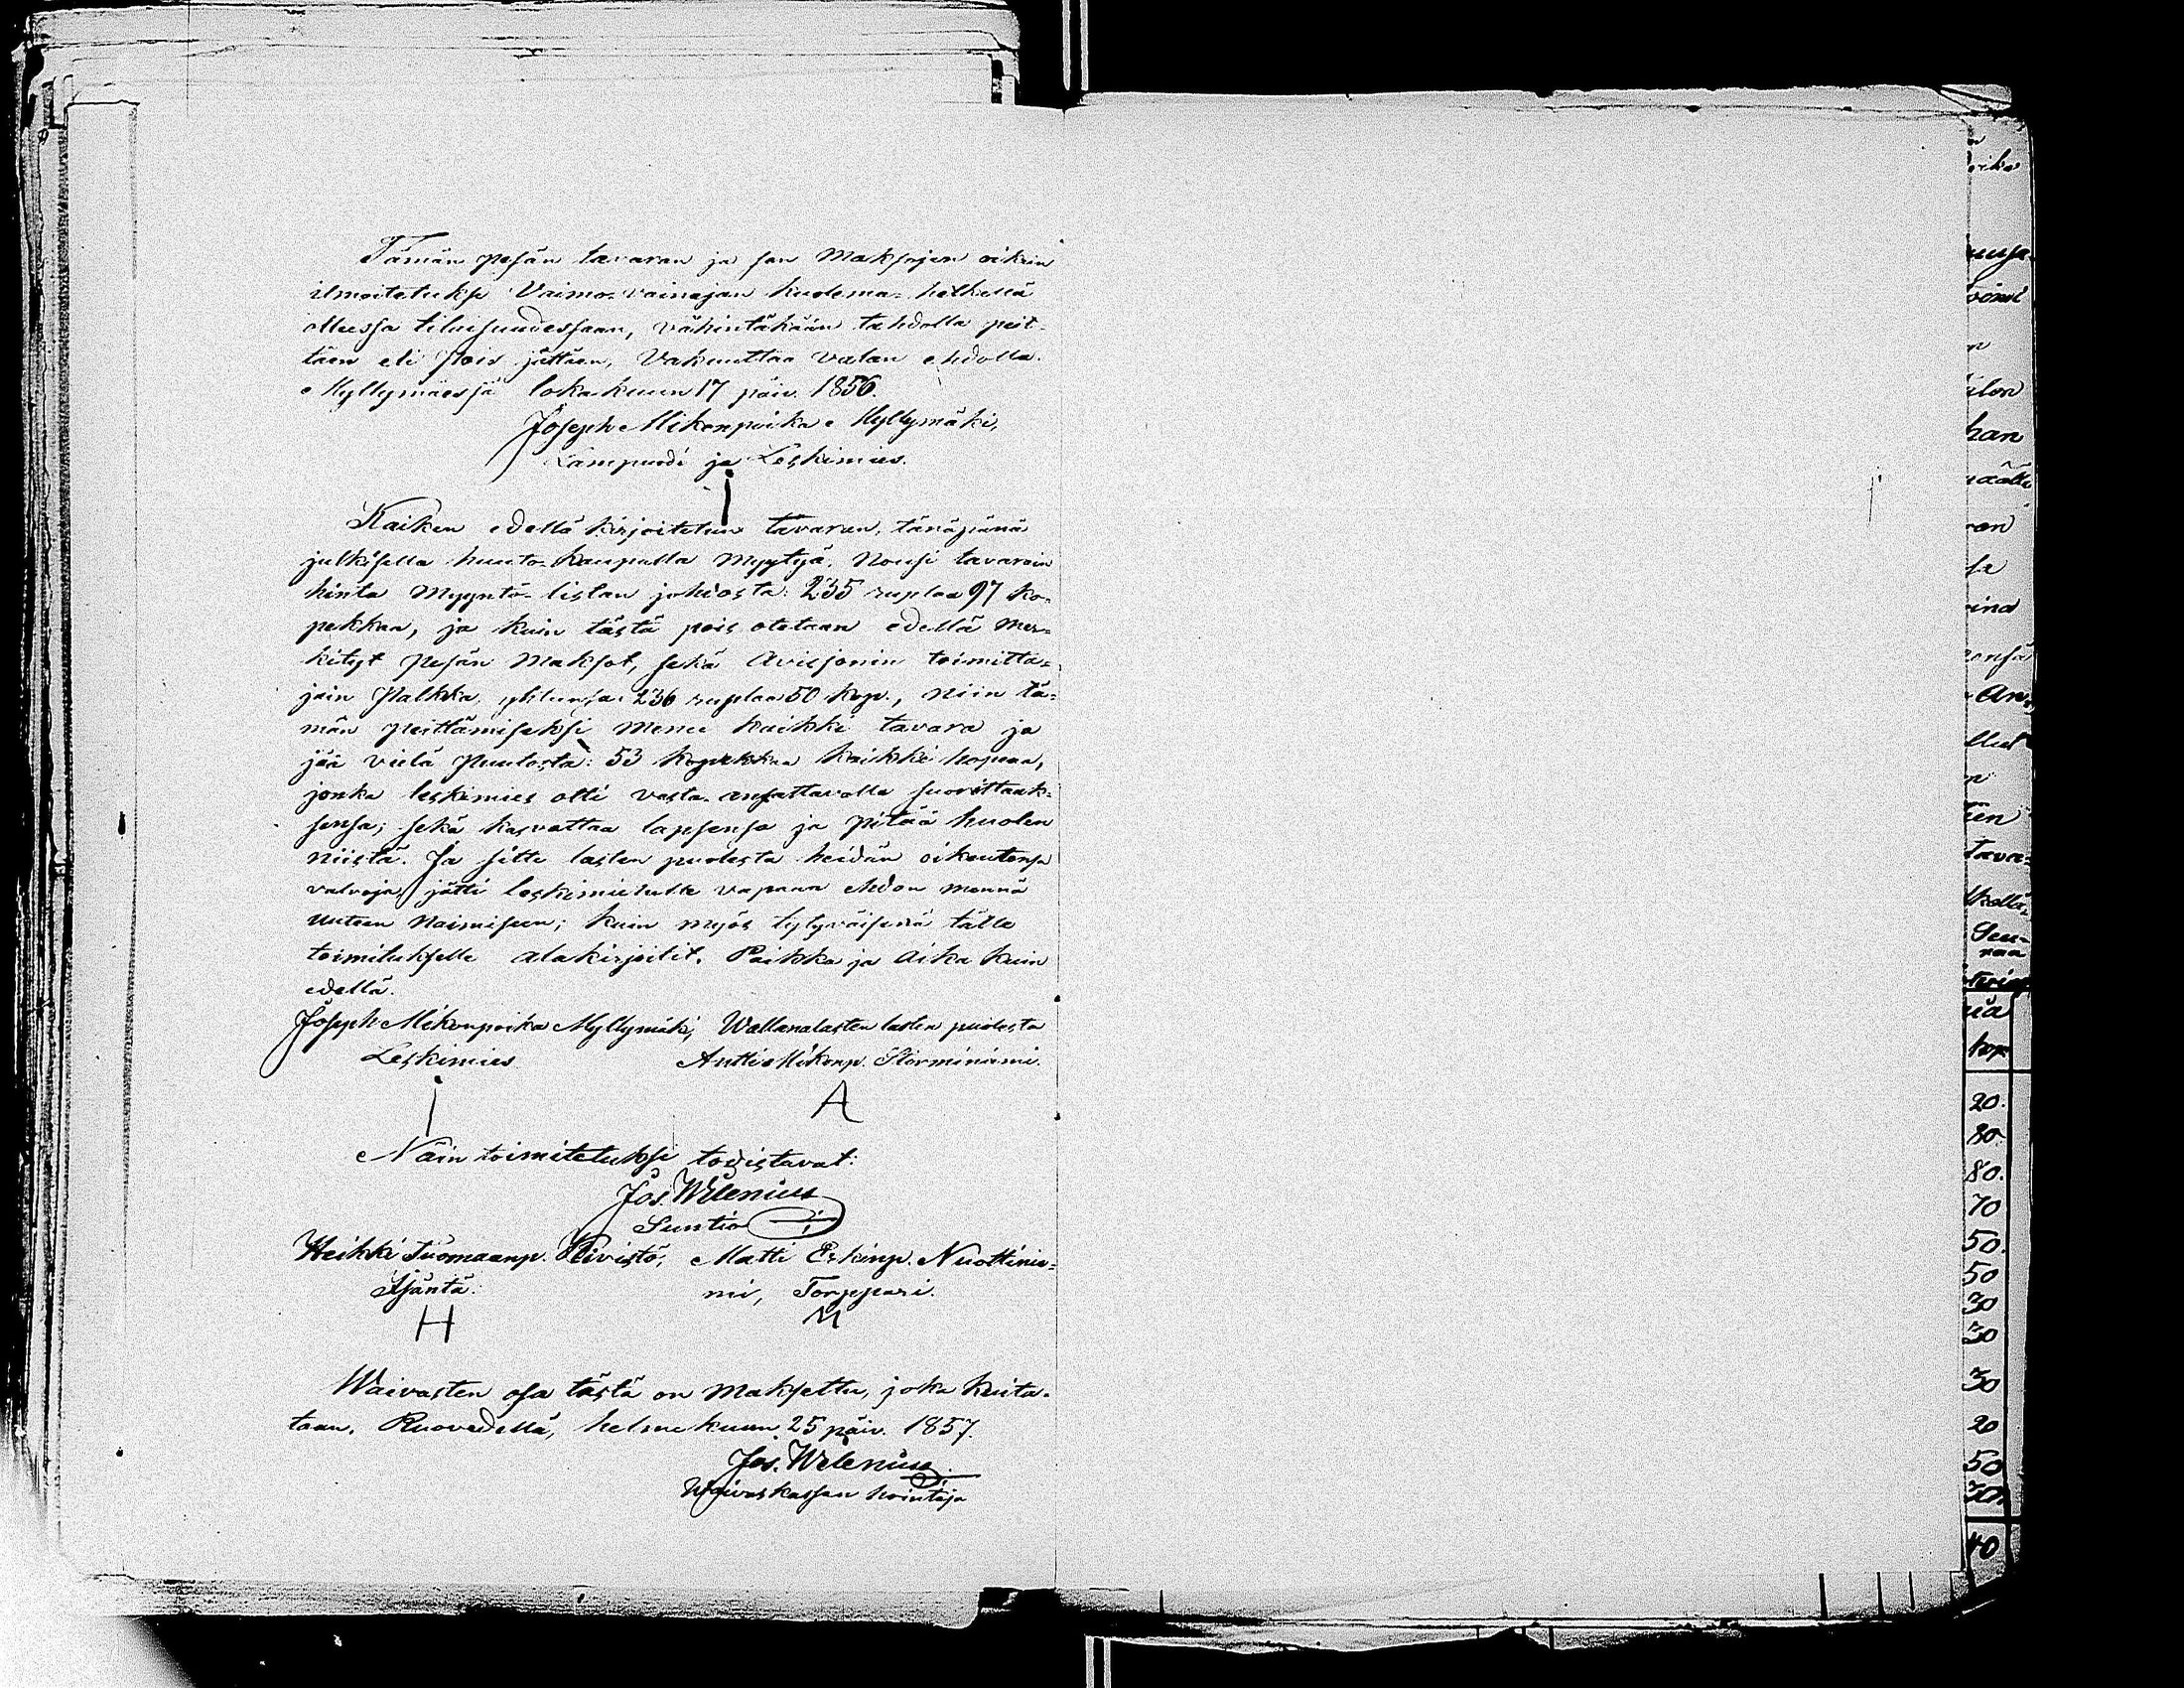 Tämän pesän tavaran ja sen maksojen oikein
ilmoitetuksi Vaimo-vainajan kuolema-hetkellä
ollessa tilaisuudessaan, vähintäkään tahdolla peit-
täen eli pois jättäen, Vakuuttaa valan ehdolla.
Myllymäessä lokakuun 17 päiv. 1856.
Joseph Mikonpoika Myllymäki,
Lampuodi ja Leskimies.
Kaiken edellä kirjoitetun tavaran, tänäpänä
julkisella huuto-kaupalla myytyä, nousi tavaroin
hinta myyntö-listan johdosta: 235 ruplaa 97 ko-
pekkaa, ja kuin tästä pois otetaan edellä mer-
kityt pesän maksot, sekä Avisjonin toimitta-
jain palkka, yhteensä 236 ruplaa 50 kop., niin tä-
män peittämiseksi menee kaikki tavara ja
jää vielä puutosta: 53 kopekkaa kaikki hopeaa,
jonka leskimies otti vasta-ansattavalla suorittaak-
sensa; sekä kasvattaa lapsensa ja pitää huolen
niistä. Ja sitte lasten puolesta heidän oikeutensa
valvoja jätti leskimiehelle vapaan ehdon mennä
uuteen naimiseen; kuin myös tytyväisenä tälle
toimitukselle alakirjoitit. Paikka ja aika kuin
edellä.
Joseph Mikonpoika Myllymäki, Wallanalasten lasten puolesta
Leskimies Antti Mikonp. Storminiemi.
A
Näin toimitetuksi todistavat:
Jos. Wilenius
Suntio
Heikki Tuomaanp. Kivistö, Matti Erkinp. Nuottinie-
Isäntä. mi, Torppari.
H M
Waivasten osa tästä on maksettu, joka kuita-
taan. Ruovedellä, helmekuun 25 päiv. 1857.
Jos. Wilenius
Waivaskassan hointaja
uusa
han
Tava-
Seu-
raa
kop
20.
80
80.
70
50.
50
30
30
30
20
50
40